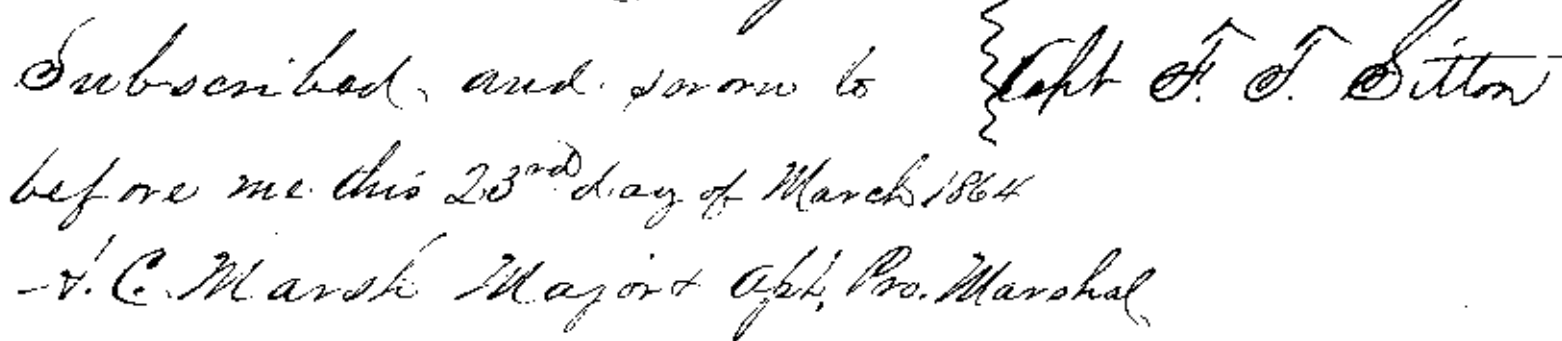 Subscribed and sworn to Capt F. T. Sitton
before me this 23rd day of March 1864
A. C. Marsh Major & Asst. Pro. Marshal